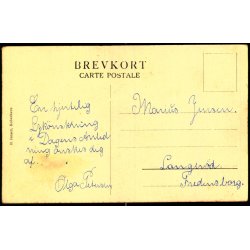 BREVKORT
CARTE POSTALE
En hjertelig
Lykönskning
i Dagens Anled
ning önskes dig
af.
Olga Petersen
Marius Jensen.
Langerød
Fredensborg.